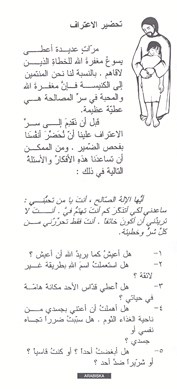 تحضير الاعتراف
مرات عديدة أعطى
يسوع مغفرة الله للخطأة الذين
لاقاهم. بالنسبة لنا نحن المنتمين
إلى الكنيسة فإن مغفرة الله
والمحبة في سر المصالحة هي
عطية عظيمة.
قبل أن نتقدم إلى سر
الاعتراف علينا أن نحضر أنفسنا
بفحص الضمير. ومن الممكن
أن تساعدنا هذه الأفكار والأسئلة
التالية في ذلك:
أيها الإله الصالح، أنت يا من تحبني:
ساعدني لكي أتذكر كم أنت تهتم فيّ. أنت لا
تريدني أن أكون خائفاً. أنت فقط تحررني من
كل شر وخطيئة.
١- هل أعيش كما يريد الله أن أعيش؟
٢- هل استعملت اسم الله بطريقة غير
لائقة؟
٣- هل أعطي قداس الأحد مكانة هامة
في حياتي؟
٤- هل أهملت أن أعتني بجسدي من
ناحية الغذاء والنوم. هل سببت ضرراً تجاه
نفسي أو
جسدي؟
٥- هل أبغضت أحداً؟ أو كنت قاسياً؟
أو شريراً ضد أحد؟
ARABISKA